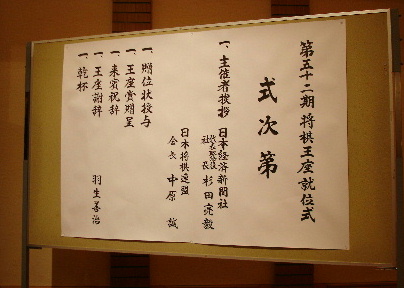 第五十二期 将棋王座就位式
式次第
一、主催者挨拶 日本経済新聞社
代表取締役
社長 杉田亮毅
日本将棋連盟
会長 中原 誠
一、贈位状授与
一、王座賞贈呈
一、来賓祝辞
一、王座謝辞 羽生善治
一、乾杯